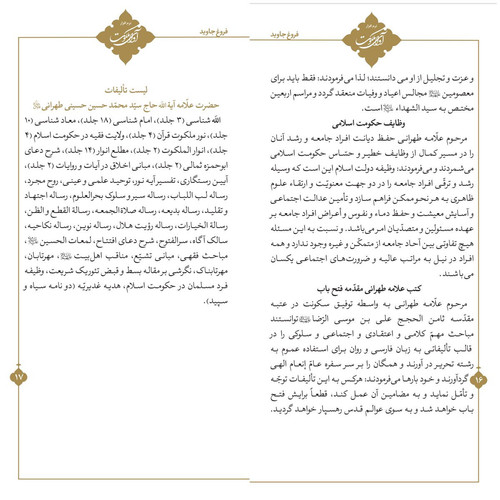 فروغ جاوید
و عزت و تجلیل از او می دانستند؛ لذا می‌فرمودند: فقط باید برای
معصومین مجالس اعیاد و وفیات منعقد گردد و مراسم اربعین
مختص به سید الشهداء است.
وظایف حکومت اسلامی
مرحوم علّامه طهرانی حفظ دیانت افراد جامعه و رشد آنان
را در مسیر کمال از وظایف خطیر و حسّاس حکومت اسلامی
می‌شمردند و می‌فرمودند: وظیفه دولت اسلام این است که وسیله
رشد و ترقّی افراد جامعه را در دو جهت معنویّت و ارتقاء علوم
ظاهری به هر نحو ممکن فراهم سازد و تأمین عدالت اجتماعی
و آسایش معیشت و حفظ دماء و نفوس و أعراض افراد جامعه بر
عهده مسئولین و متصدّیان امر می‌باشد. و نسبت به این مسئله
هیچ تفاوتی بین آحاد جامعه از متمکّن و غیره وجود ندارد و همه
افراد در نیل به مراتب عالیه و ضرورت‌های اجتماعی یکسان
می‌باشند.
کتب علامه طهرانی مقدّمه فتح باب
مرحوم علّامه طهرانی به واسطه توفیق سکونت در عتبه
مقدّسه ثامن الحجج علی بن موسی الرّضا توانستند
مباحث مهمّ کلامی و اعتقادی و اجتماعی و سلوکی را در
قالب تألیفاتی به زبان فارسی و روان برای استفاده عموم به
رشته تحریر در آورند و همگان را بر سر سفره عامّ إنعام الهی
گردآورند و خود بارها می‌فرمودند: هرکس به این تألیفات توجّه
و تأمّل نماید و به مضامین آن عمل کند، قطعاً برایش فتح
باب خواهد شد و به سوی عوالم قدس رهسپار خواهد گردید.
۱۶
فروغ جاوید
لیست تألیفات
حضرت علّامه آیة الله حاج سیّد محمّد حسین حسینی طهرانی
الله شناسی (۳ جلد)، امام شناسی (۱۸ جلد)، معاد شناسی (۱۰
جلد)، نور ملکوت قرآن (۴ جلد)، ولایت فقیه در حکومت اسلام (۴
جلد)، انوار الملکوت (۲ جلد)، مطلع انوار (۱۴ جلد)، شرح دعای
ابوحمزه ثمالی (۲ جلد)، مبانی اخلاق در آیات و روایات (۲ جلد)،
آیین رستگاری، تفسیر آیه نور، توحید علمی و عینی، روح مجرد،
رساله لب اللباب، رساله سیر و سلوک بحرالعلوم، رساله اجتهاد
و تقلید، رساله بدیعه، رساله صلاة الجمعه، رسالة القطع و الظن،
رسالة الخیارات، رساله رؤیت هلال، رساله نوین، رساله نکاحیه،
سالک آگاه، سرالفتوح، شرح دعای افتتاح، لمعات الحسین،
مباحث فقهی، مبانی تشیّع، مناقب اهل‌بیت، مهرتابان،
مهرتابناک، نگرشی بر مقاله بسط و قبض تئوریک شریعت، وظیفه
فرد مسلمان در حکومت اسلام، هدیه غدیریّه (دو نامه سیاه و
سپید).
۱۷